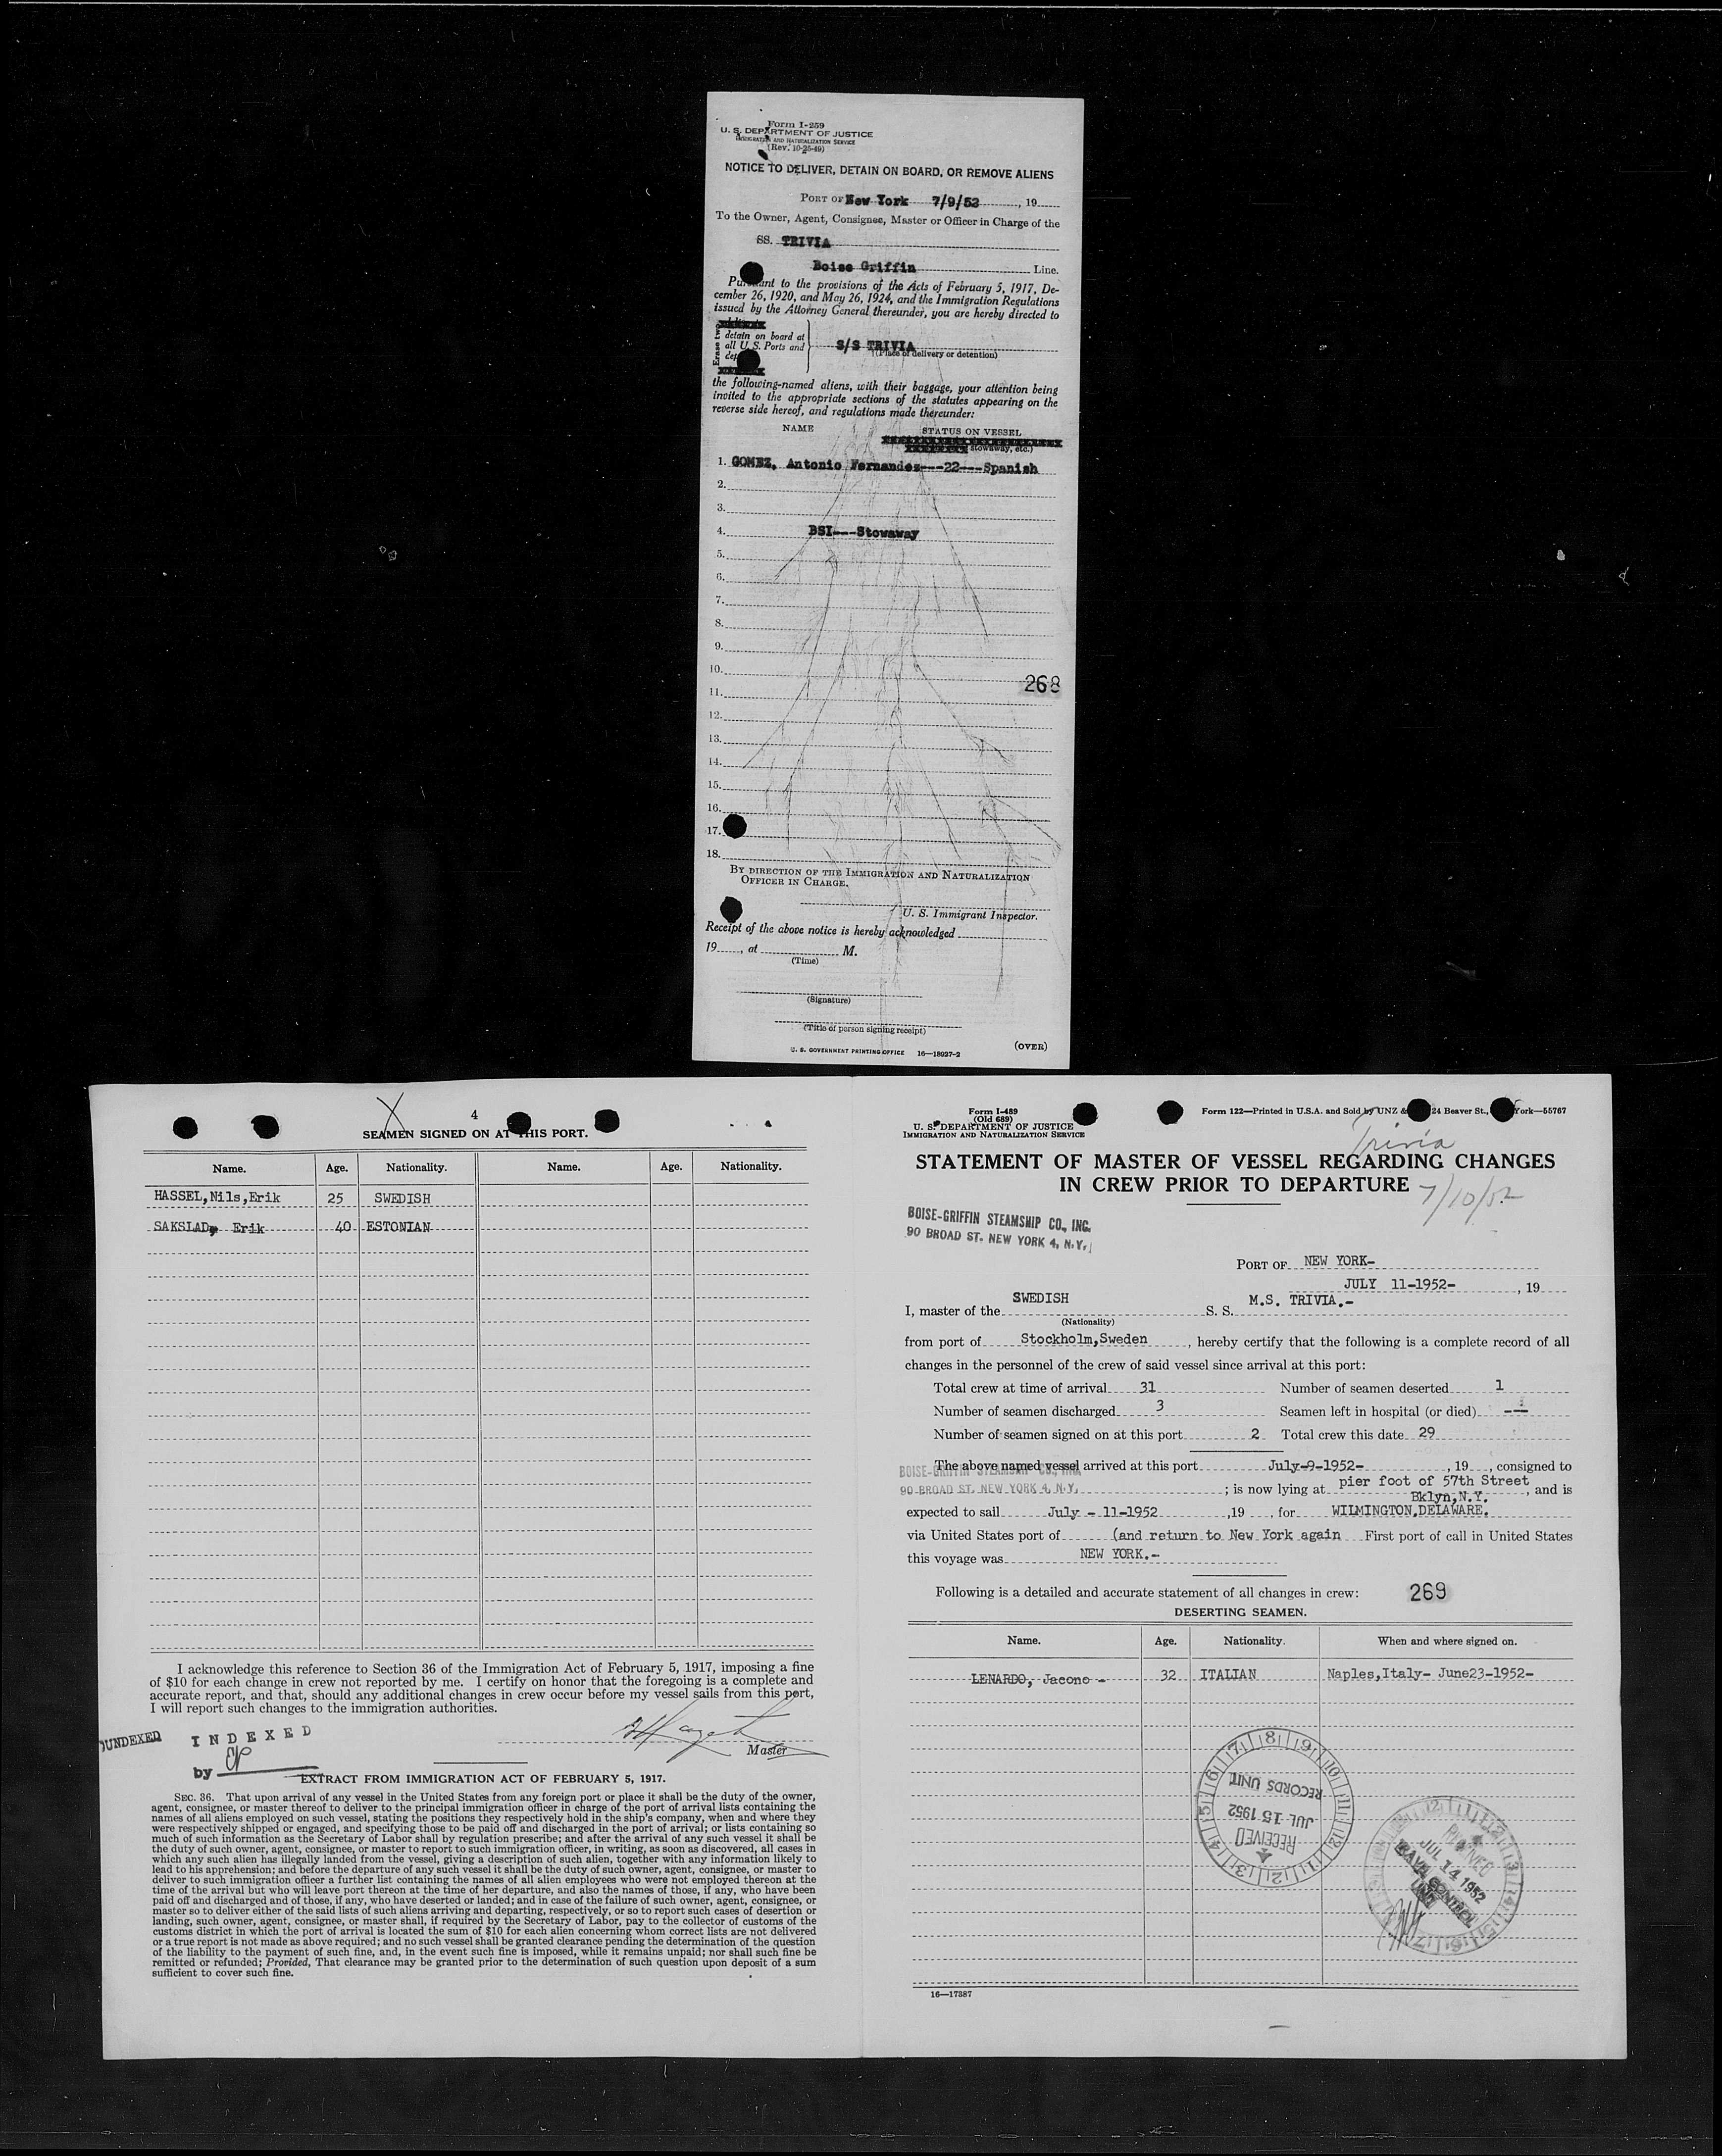 Form I-259
U. S. DEPARTMENT OF JUSTICE
IMMIGRATION AND NATURALIZATION SERVICE
(Rev. 10-25-49)
NOTICE TO DELIVER, DETAIN ON BOARD, OR REMOVE ALIENS
PORT OF New York 7/9/52, 19
To the Owner, Agent, Consignee, Master or Officer in Charge of the
SS. TRIVIA
Boise Griffin Line.
Pursuant to the provisions of the Acts of February 5, 1917, De-
cember 26, 1920, and May 26, 1924, and the Immigration Regulations
issued by the Attorney General thereunder, you are hereby directed to
Erase two
detain on board at
all U.S. Ports and
S/S TRIVIA
(Place of delivery or detention)
the following-named aliens, with their baggage, your attention being
invited to the appropriate sections of the statutes appearing on the
reverse side hereof, and regulations made thereunder:
NAME STATUS ON VESSEL
stowaway, etc.)
1. GOMEZ, Antonio Fernandez---22---Spanish
2.
3.
4. BSI---Stowaway
5.
6.
7.
8.
9.
10.
268
11.
12.
13.
14.
15.
16.
17.
18.
BY DIRECTION OF THE IMMIGRATION AND NATURALIZATION
OFFICER IN CHARGE.
U. S. Immigrant Inspector.
Receipt of the above notice is hereby acknowledged
19, at M.
(Time)
(Signature)
(Title of person signing receipt)
U. S. GOVERNMENT PRINTING OFFICE 16—18927-2 (OVER)
X
4
SEAMEN SIGNED ON AT THIS PORT.
Name. Age. Nationality. Name. Age. Nationality.
HASSEL,Nils,Erik 25 SWEDISH
SAKSLAD, Erik 40 ESTONIAN
I acknowledge this reference to Section 36 of the Immigration Act of February 5, 1917, imposing a fine
of $10 for each change in crew not reported by me. I certify on honor that the foregoing is a complete and
accurate report, and that, should any additional changes in crew occur before my vessel sails from this port,
I will report such changes to the immigration authorities.
INDEXED
by
Master
EXTRACT FROM IMMIGRATION ACT OF FEBRUARY 5, 1917.
SEC. 36. That upon arrival of any vessel in the United States from any foreign port or place it shall be the duty of the owner,
agent, consignee, or master thereof to deliver to the principal immigration officer in charge of the port of arrival lists containing the
names of all aliens employed on such vessel, stating the positions they respectively hold in the ship's company, when and where they
were respectively shipped or engaged, and specifying those to be paid off and discharged in the port of arrival; or lists containing so
much of such information as the Secretary of Labor shall by regulation prescribe; and after the arrival of any such vessel it shall be
the duty of such owner, agent, consignee, or master to report to such immigration officer, in writing, as soon as discovered, all cases in
which any such alien has illegally landed from the vessel, giving a description of such alien, together with any information likely to
lead to his apprehension; and before the departure of any such vessel it shall be the duty of such owner, agent, consignee, or master to
deliver to such immigration officer a further list containing the names of all alien employees who were not employed thereon at the
time of the arrival but who will leave port thereon at the time of her departure, and also the names of those, if any, who have been
paid off and discharged and of those, if any, who have deserted or landed; and in case of the failure of such owner, agent, consignee, or
master so to deliver either of the said lists of such aliens arriving and departing, respectively, or so to report such cases of desertion or
landing, such owner, agent, consignee, or master shall, if required by the Secretary of Labor, pay to the collector of customs of the
customs district in which the port of arrival is located the sum of $10 for each alien concerning whom correct lists are not delivered
or a true report is not made as above required; and no such vessel shall be granted clearance pending the determination of the question
of the liability to the payment of such fine, and, in the event such fine is imposed, while it remains unpaid; nor shall such fine be
remitted or refunded; Provided, That clearance may be granted prior to the determination of such question upon deposit of a sum
sufficient to cover such fine.
Form I-489
(Old 689)
U. S. DEPARTMENT OF JUSTICE
IMMIGRATION AND NATURALIZATION SERVICE
Form 122—Printed in U.S.A. and Sold by UNZ & 24 Beaver St., York—55767
Trivia
STATEMENT OF MASTER OF VESSEL REGARDING CHANGES
IN CREW PRIOR TO DEPARTURE
7/10/52
BOISE-GRIFFIN STEAMSHIP CO., INC.
90 BROAD ST. NEW YORK 4, N.Y.
PORT OF NEW YORK-
JULY 11-1952-, 19
I, master of the SWEDISH S. S. M.S. TRIVIA.-
(Nationality)
from port of Stockholm,Sweden, hereby certify that the following is a complete record of all
changes in the personnel of the crew of said vessel since arrival at this port:
Total crew at time of arrival 31 Number of seamen deserted 1
Number of seamen discharged 3 Seamen left in hospital (or died) --
Number of seamen signed on at this port 2 Total crew this date 29
The above named vessel arrived at this port July-9-1952-, 19, consigned to
BOISE-GRIFFIN STEAMSHIP CO., INC.
90 BROAD ST. NEW YORK 4, N.Y. ; is now lying at pier foot of 57th Street Bklyn,N.Y., and is
expected to sail July - 11-1952, 19, for WILMINGTON,DELAWARE.
via United States port of (and return to New York again First port of call in United States
this voyage was NEW YORK.-
Following is a detailed and accurate statement of all changes in crew: 269
DESERTING SEAMEN.
Name. Age. Nationality. When and where signed on.
LENARDO, Jacono - 32 ITALIAN Naples,Italy- June23-1952-
RECORDS UNIT
JUL 15 1952
RECEIVED
JUL 14 1952
CONTROL
UNIT
16—17387